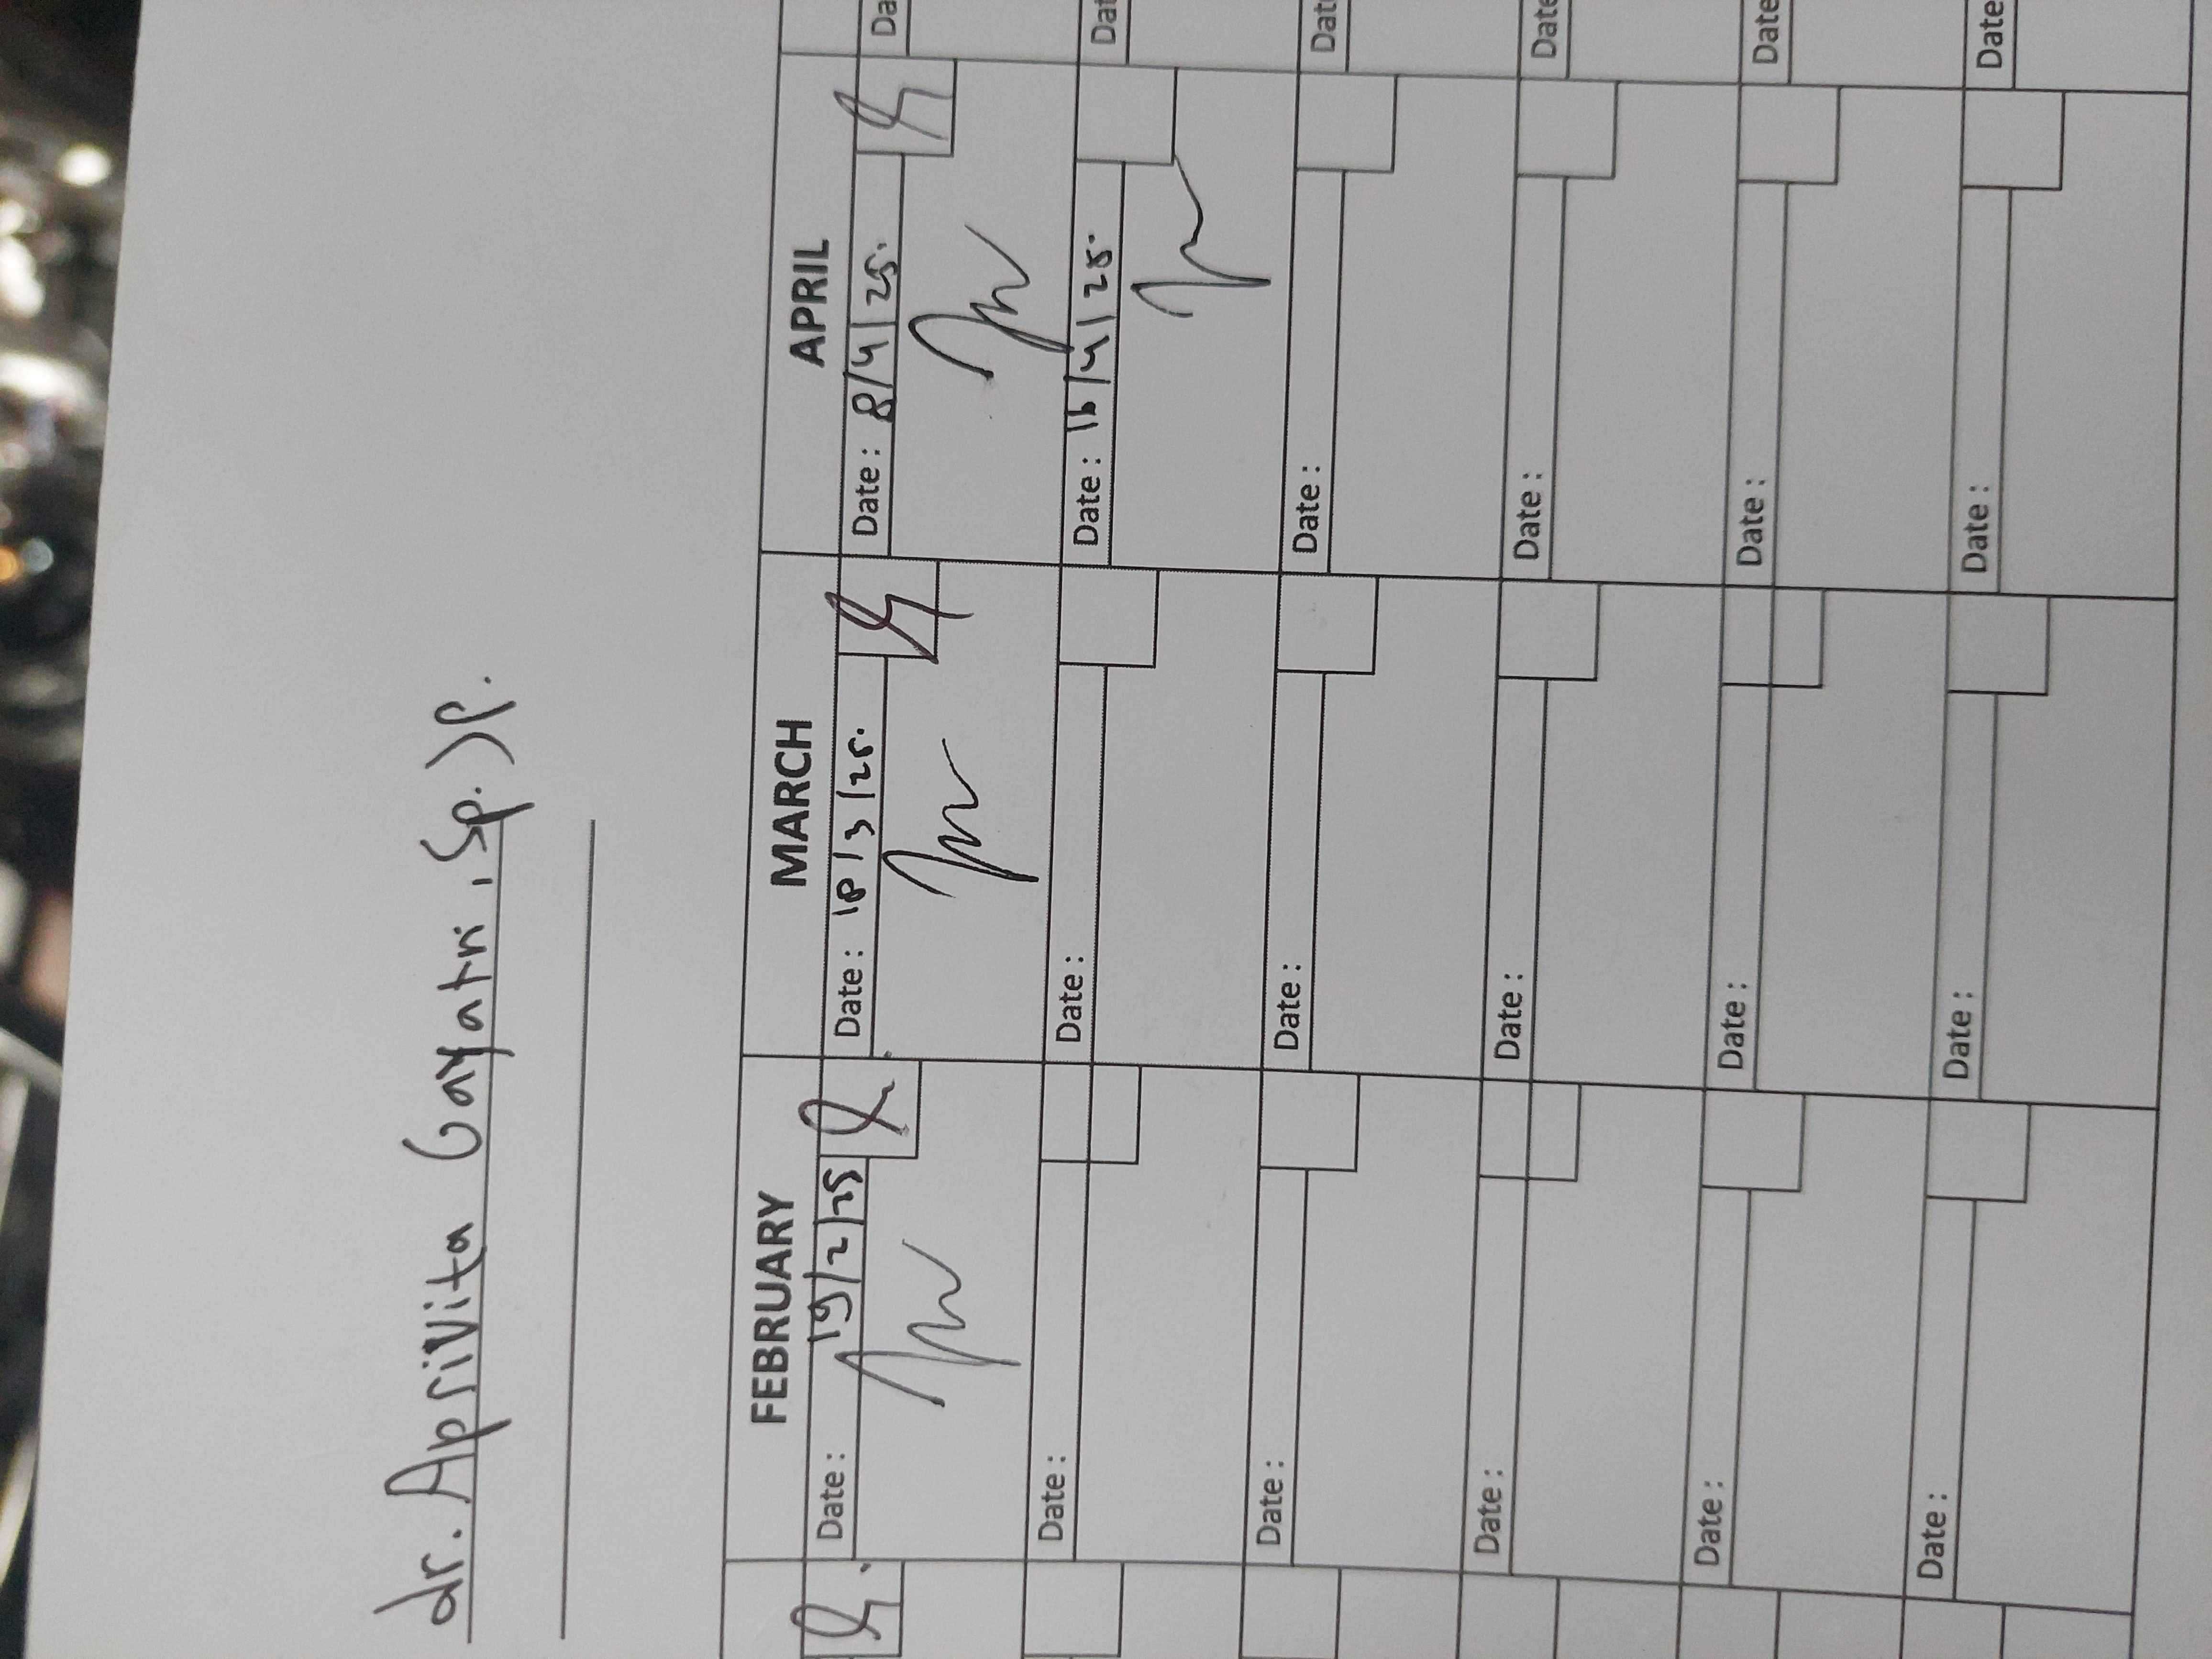 dr. Aprilvita Gayatri, Sp.JP.
FEBRUARY MARCH APRIL
Date : 19/2/25 Date : 18/3/25. Date : 8/4/25. Da
Date : Date : Date : 16/4/25. Dat
Date : Date : Date : Dat
Date : Date : Date : Date
Date : Date : Date : Date
Date : Date : Date : Date